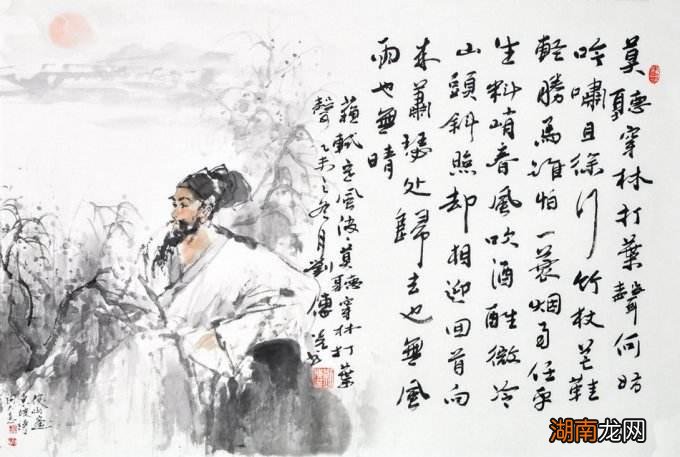 莫聽穿林打葉聲何妨
吟嘯且徐行竹杖芒鞋
輕勝馬誰怕一蓑烟雨任平
生料峭春風吹酒醒微冷
山頭斜照却相迎回首向
来蕭瑟处歸去也無風
雨也無晴
蘇軾定風波·莫聽穿林打葉
聲乙未之冬月劉傳
湖南龙网